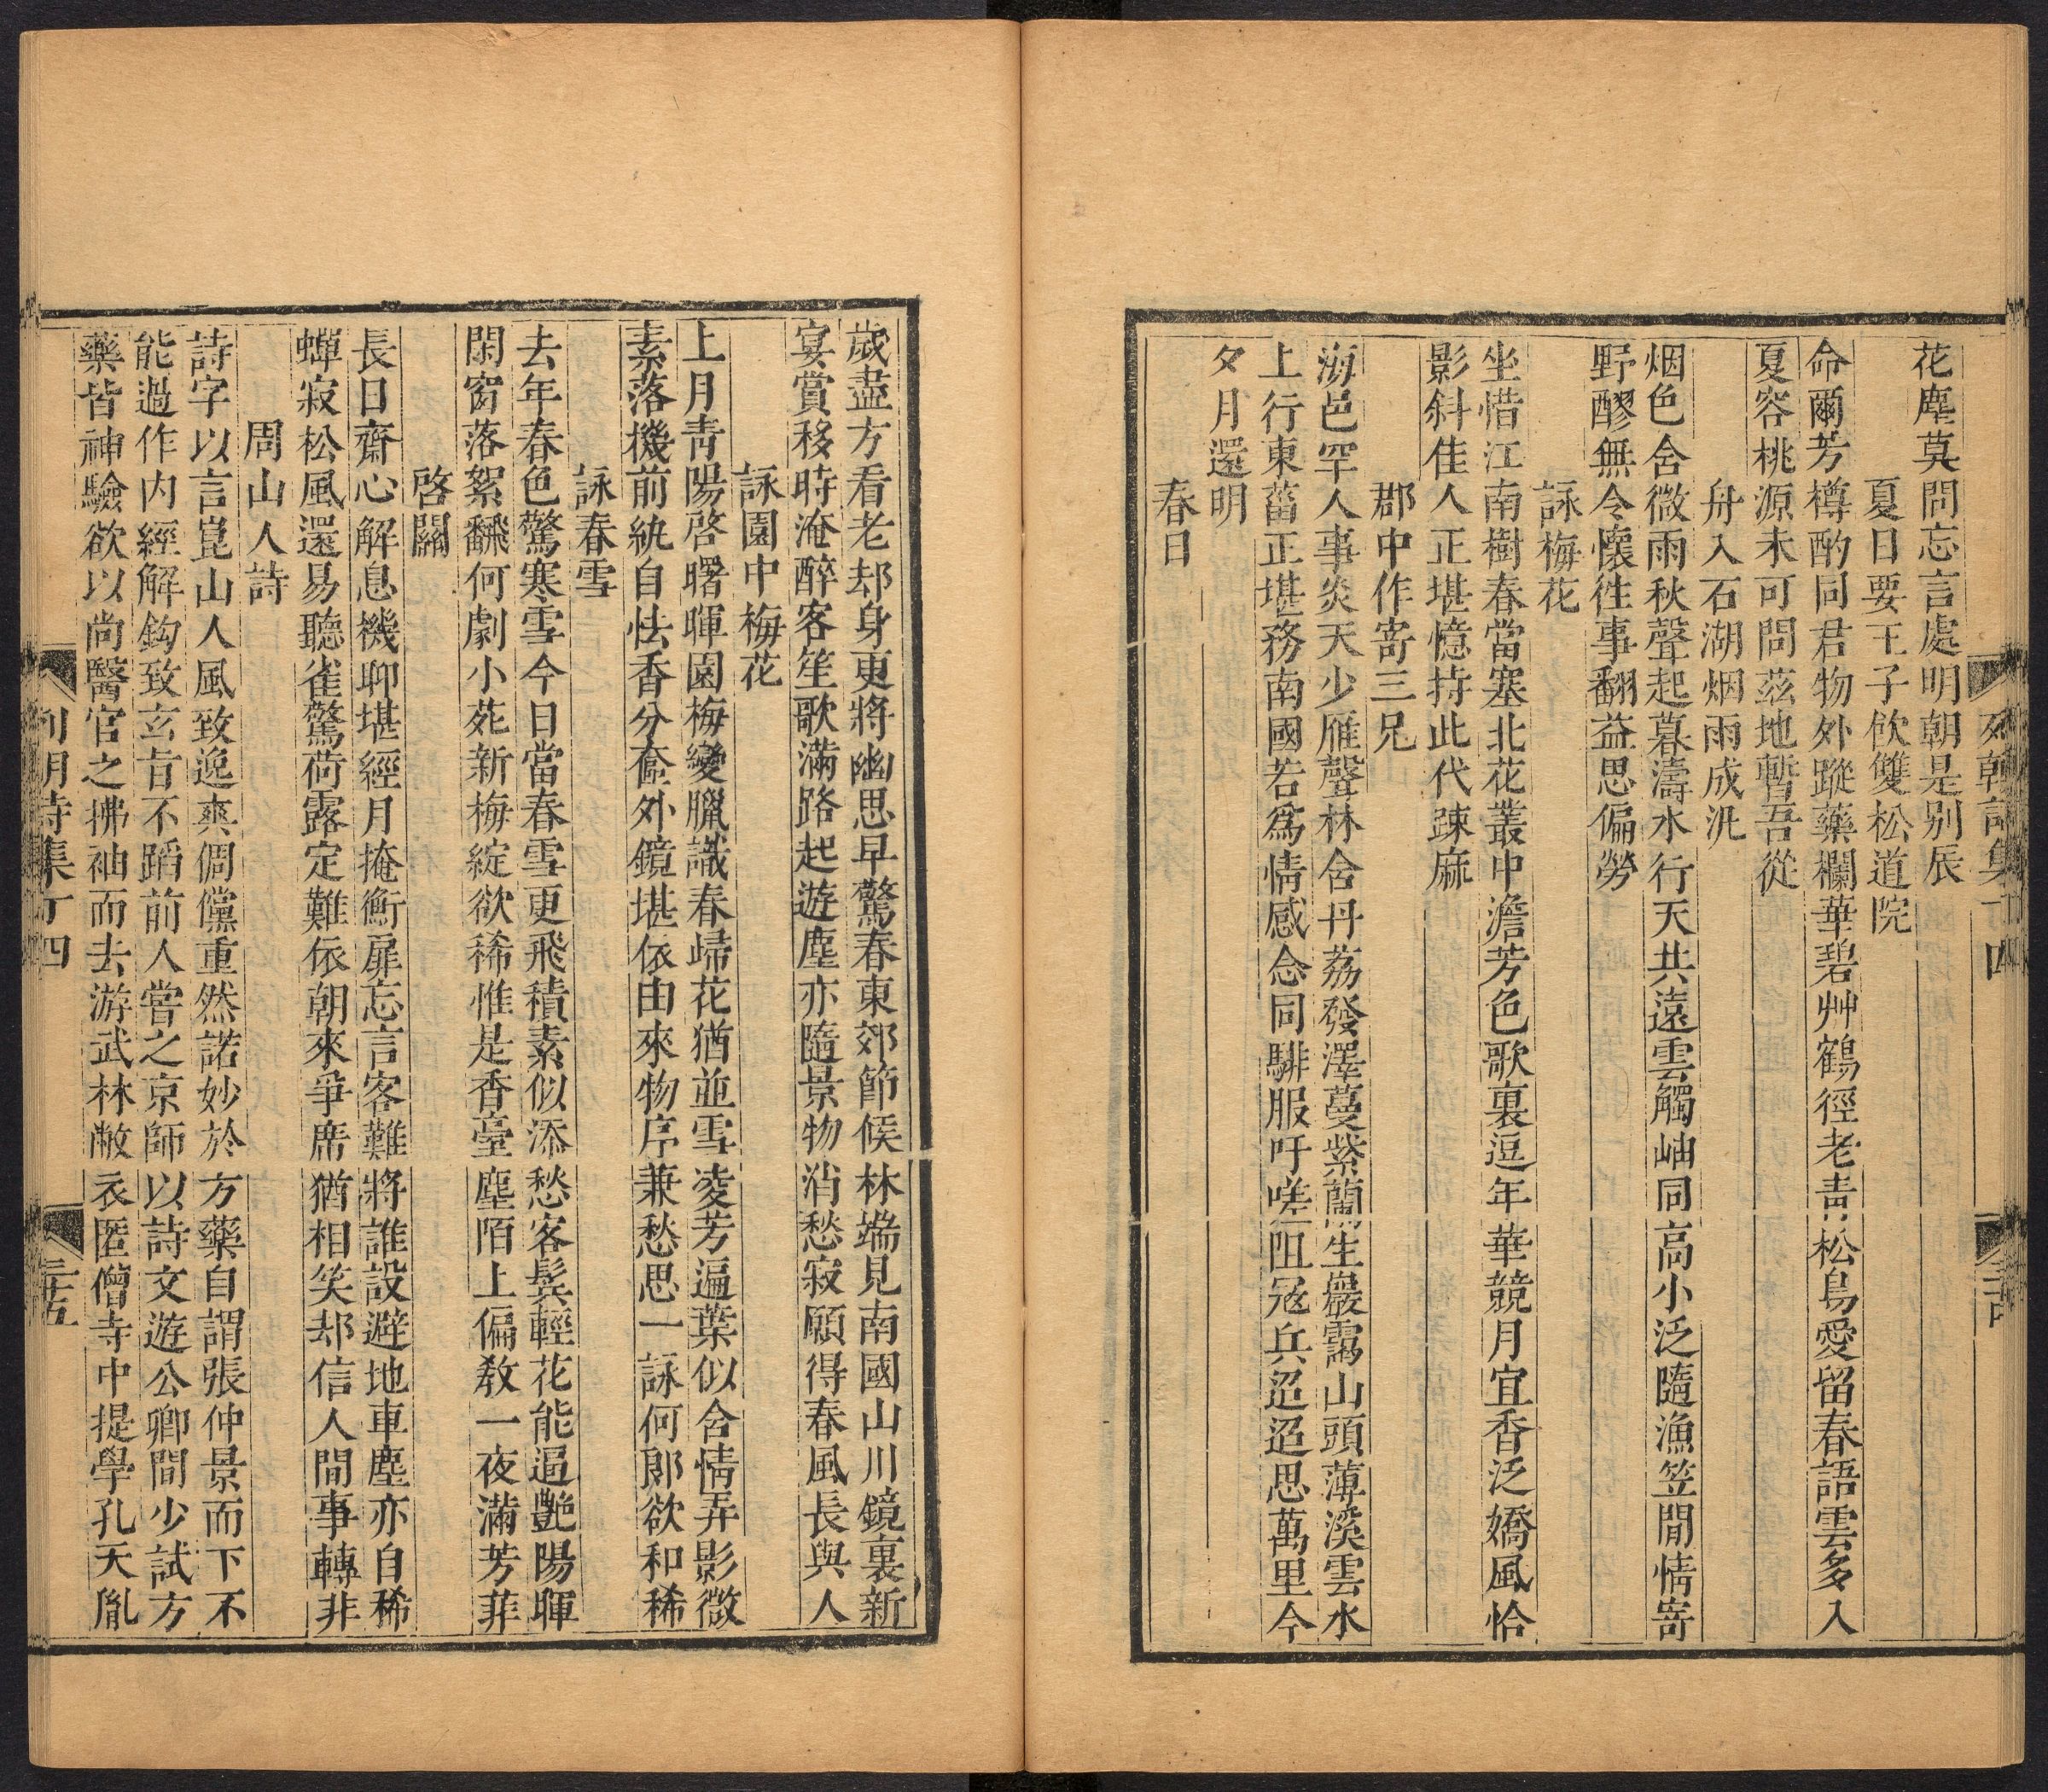 列朝詩集丁四
花塵莫問忘言處明朝是别辰
夏日要王子飲雙松道院
命爾芳樽酌同君物外蹤藥欄華碧艸鶴徑老青松鳥愛留春語雲多入
夏容桃源未可問茲地暫吾從
舟入石湖烟雨成汎
烟色含微雨秋聲起暮濤水行天共遠雲觸岫同高小泛隨漁笠閒情寄
野醪無令懷徃事翻益思偏勞
詠梅花
坐惜江南樹春當塞北花叢中澹芳色歌裏逗年華競月宜香泛嬌風恰
影斜佳人正堪憶持此代疎麻
郡中作寄三兄
海邑罕人事炎天少雁聲林含丹荔發澤蔓紫蘭生嚴靄山頭薄溪雲水
上行東菑正堪務南國若爲情感念同騑服吁嗟阻冦兵迢迢思萬里今
夕月還明
春日
歲盡方看老却身更將幽思早驚春東郊節候林端見南國山川鏡裏新
宴賞移時淹醉客笙歌滿路起遊塵亦隨景物消愁寂願得春風長與人
詠園中梅花
上月青陽啓曙暉園梅變臘識春歸花猶並雪凌芳逼葉似含情弄影微
素落機前紈自怯香分奩外鏡堪依由來物序兼愁思一詠何郎欲和稀
詠春雪
去年春色驚寒雪今日當春雪更飛積素似添愁客鬂輕花能逼艶陽暉
閑窗落絮翻何劇小苑新梅綻欲稀惟是香臺塵陌上偏教一夜滿芳菲
啓關
長日齋心解息機聊堪經月掩衡扉忘言客難將誰設避地車塵亦自稀
蟬寂松風還易聽雀驚荷露定難依朝來爭席猶相笑却信人間事轉非
周山人詩
詩字以言崑山人風致逸爽倜儻重然諾妙於方藥自謂張仲景而下不
能過作内經解鈎致玄旨不蹈前人嘗之京師以詩文遊公卿間少試方
藥皆神驗欲以尚醫官之拂袖而去游武林敝衣匿僧寺中提學孔天胤
列朝詩集丁四
三十五